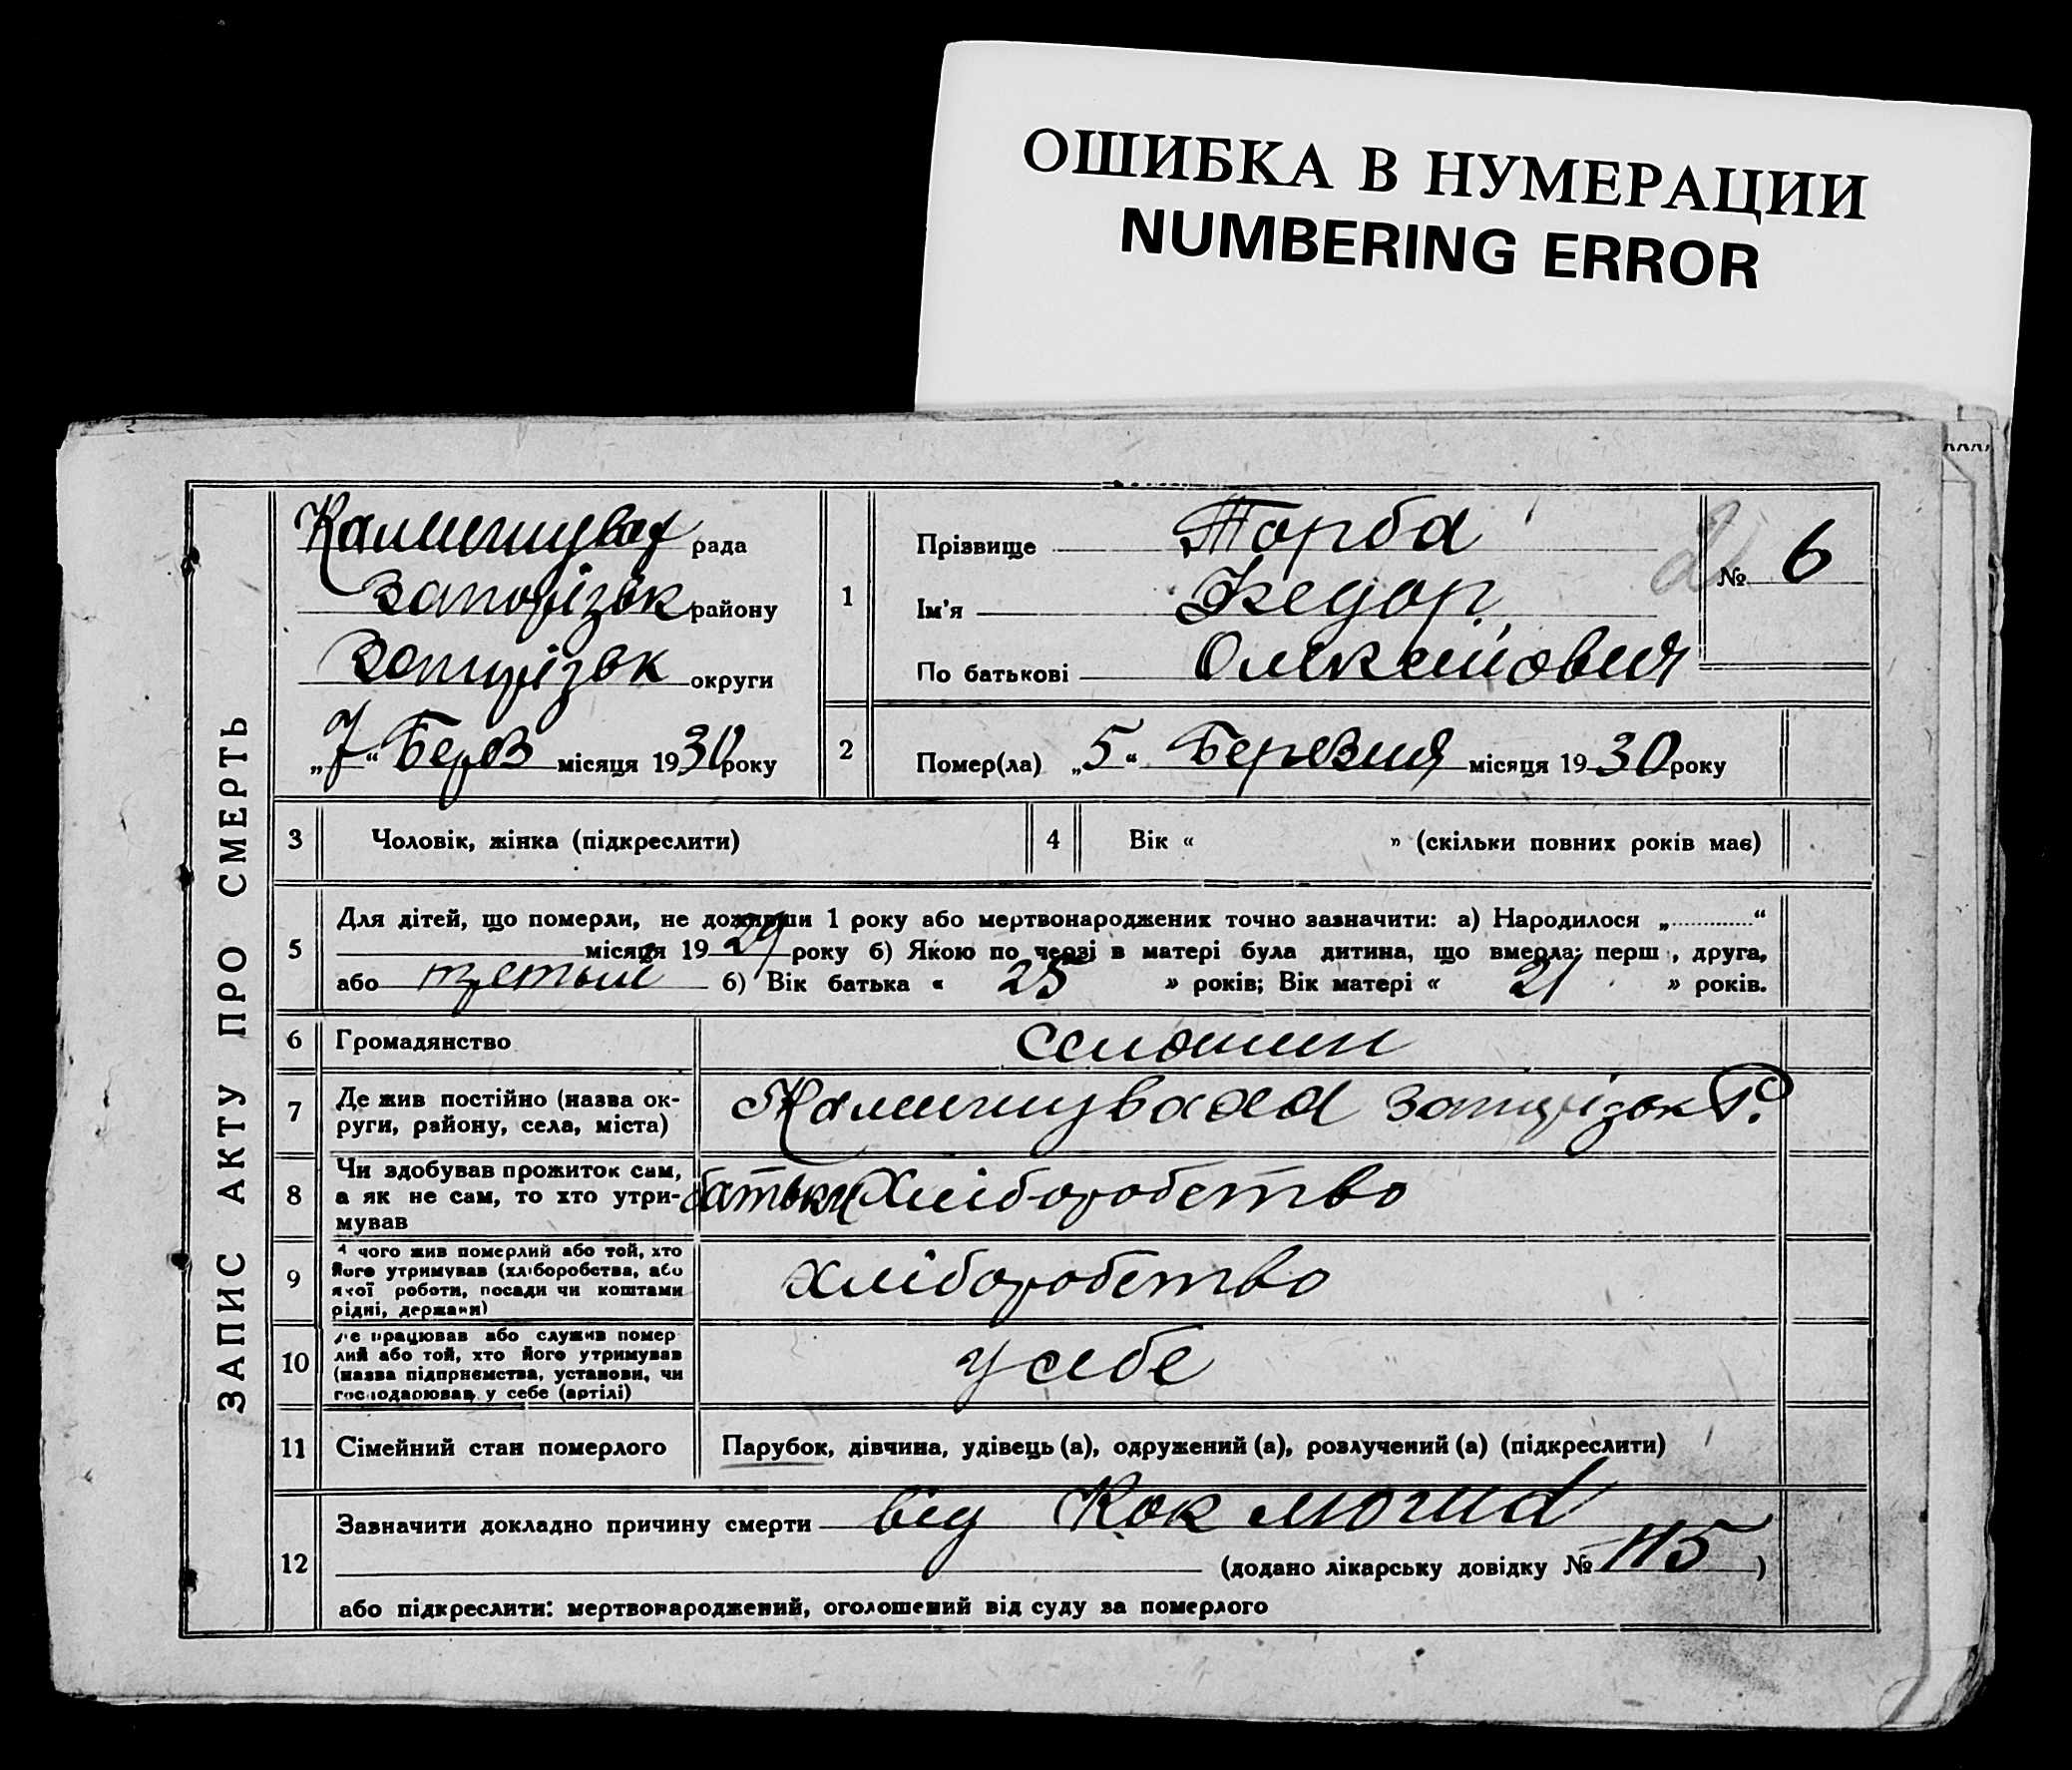 ОШИБКА В НУМЕРАЦИИ
NUMBERING ERROR
ЗАПИС АКТУ ПРО СМЕРТЬ
рада
Запорізьк району
Запорізьк округи
„7“ Берез місяця 1930 року
1
Прізвище Торба
Ім'я Федор
По батькові Олексійович
№ 6
2
Помер(ла) „5“ Березня місяця 1930 року
3 Чоловік, жінка (підкреслити)
4 Вік « » (скільки повних років має)
5
Для дітей, що померли, не доживши 1 року або мертвонароджених точно зазначити: а) Народилося „ “
місяця 1929 року б) Якою по черзі в матері була дитина, що вмерла: перш , друга,
або третьій б) Вік батька « 25 » років; Вік матері « 21 » років.
6 Громадянство селянин
7 Де жив постійно (назва ок-
руги, району, села, міста) Запорізьк
8 Чи здобував прожиток сам,
а як не сам, то хто утри-
мував
батьки Хліборобство
9 чого жив померлий або той, хто
його утримував (хліборобства, або
якої роботи, посади чи коштами
рідні, держави)
хліборобство
10 де працював або служив помер
лий або той, хто його утримував
(назва підприємства, установи, чи
господарював у себе (артілі)
у себе
11 Сімейний стан померлого Парубок, дівчина, удівець (а), одружений (а), розлучений (а) (підкреслити)
12
Зазначити докладно причину смерти від
(додано лікарську довідку № 115 )
або підкреслити: мертвонароджений, оголошений від суду за померлого